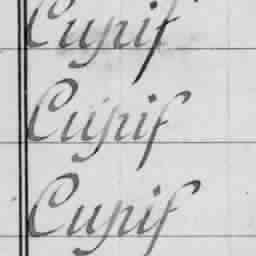 Cupif
Cupif
Cupif